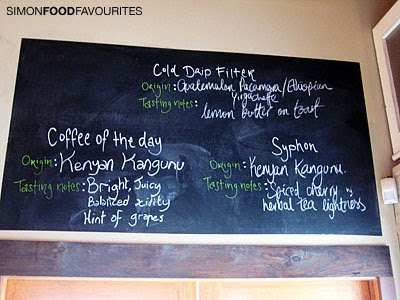 SIMONFOODFAVOURITES
Cold Drip Filter
Origin: Guatemalan Pacamara/Ethiopian
Yirgacheffe
Tasting notes: lemon butter on toast
Coffee of the day
Origin: Kenyan Kangunu
Tasting notes: Bright, Juicy
acidity
Hint of grapes
Syphon
Origin: Kenyan Kangunu.
Tasting notes: Spiced cherry w
herbal tea lightness